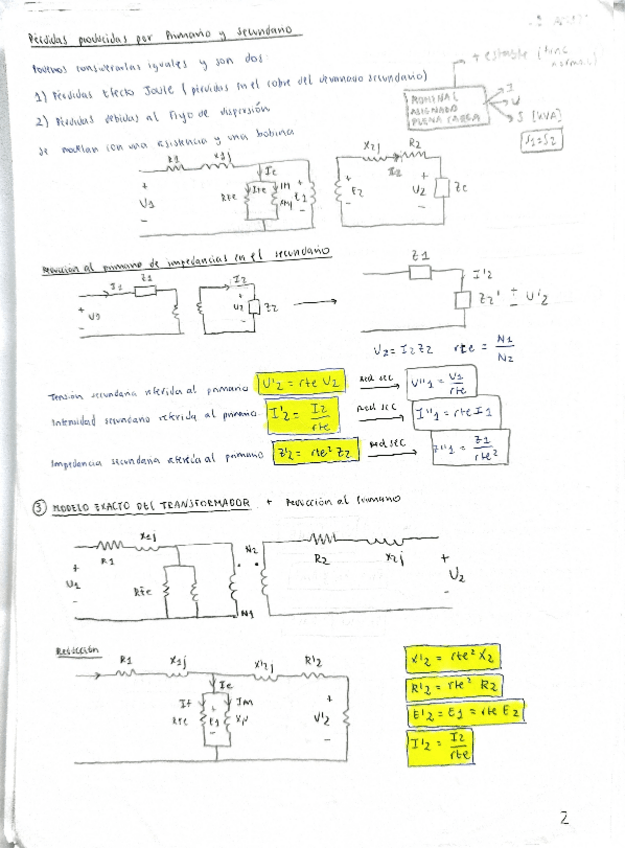 Pérdidas producidas por Primario y Secundario
Podemos considerarlas iguales y son dos:
+ estable (func normal)
1) Pérdidas Efecto Joule (pérdidas en el cobre del devanado secundario)
NOMINAL
ASIGNADO
PLENA CARGA
I
U
S [kVA]
S1=S2
2) Pérdidas debidas al flujo de dispersión
Se modelan con una resistencia y una bobina
R1 X1j Ie Rfe Ife Im E1 U1 + -
X2j R2 I2 E2 U2 Zc + -
Reducción al primario de impedancias en el secundario
I1 Z1 U1 + -
I2 U2 Z2 + -
Z1 I'2 Z2' + - U'2
U2 = I2 Z2 rte = N1/N2
Tensión secundaria referida al primario U'2 = rte U2 Red sec U''1 = U1/rte
Intensidad secundario referida al primario I'2 = I2/rte Red sec I''1 = rte I1
Impedancia secundaria referida al primario Z'2 = rte² Z2 Red sec Z''1 = Z1/rte²
③ MODELO EXACTO DEL TRANSFORMADOR + Reducción al Primario
R1 X1j Rfe U1 + - N2 N1
R2 X2j U2 + -
Reducción
R1 X1j Ie X'2j R'2
If Rfe E1 + - Im Xµ U'2 + -
X'2 = rte² X2
R'2 = rte² R2
E'2 = E1 = rte E2
I'2 = I2/rte
2